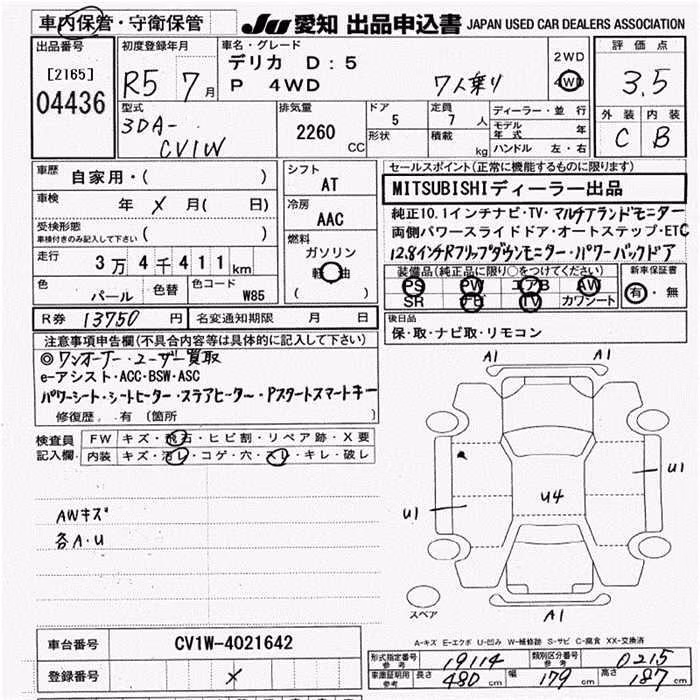 車内保管・守衛保管
JU 愛知 出品申込書 JAPAN USED CAR DEALERS ASSOCIATION
出品番号
[2165]
04436
初度登録年月
R5 7月
車名・グレード
デリカ D:5
P 4WD 7人乗り
2WD
4WD
評価点
3.5
外装 内装
C B
型式
3DA-
CV1W
排気量
2260 CC
ドア
5
形状
定員
7 人
積載
kg
ディーラー・並行
モデル年式 年
ハンドル 左・右
車歴
自家用・( )
車検
年 メ 月( 日)
受検形態
車検付きのみ記入して下さい ( )
走行
3万4千411km
色
パール
色替
色コード
W85
シフト
AT
冷房
AAC
燃料
ガソリン
軽油
( )
セールスポイント(正常に機能するものに限ります)
MITSUBISHIディーラー出品
純正10.1インチナビ・TV・マルチアランドモニター
両側パワースライドドア・オートステップ・ETC
12.8インチRフリップダウンモニター・パワーバックドア
装備品(純正品に限り○をつけてください)
PS PW エアB AW
SR TV カワシート
新車保証書
有・無
R券 13750 円
名変通知期限 月 日
後日品
保・取・ナビ取・リモコン
注意事項申告欄(不具合内容等は具体的に記入して下さい)
◎ワンオーナー・ユーザー買取
e-アシスト・ACC・BSW・ASC
パワーシート・シートヒーター・ステアヒーター・Pスタートスマートキー
修復歴. 有 (箇所 )
検査員
記入欄
FW キズ・飛石・ヒビ割・リペア跡・X要
内装 キズ・汚レ・コゲ・穴・スレ・キレ・破レ
AWキズ
各A・U
A1 A1
U1
U4
U1
A1
スペア
A-キズ E-エクボ U-凹み W-補修跡 S-サビ C-腐食 XX-交換済
車台番号 CV1W-4021642
登録番号 メ
形式指定番号 参考 19114
類別区分番号 参考 0215
車庫証明用 参考 長さ 480 cm 幅 179 cm 高さ 187 cm